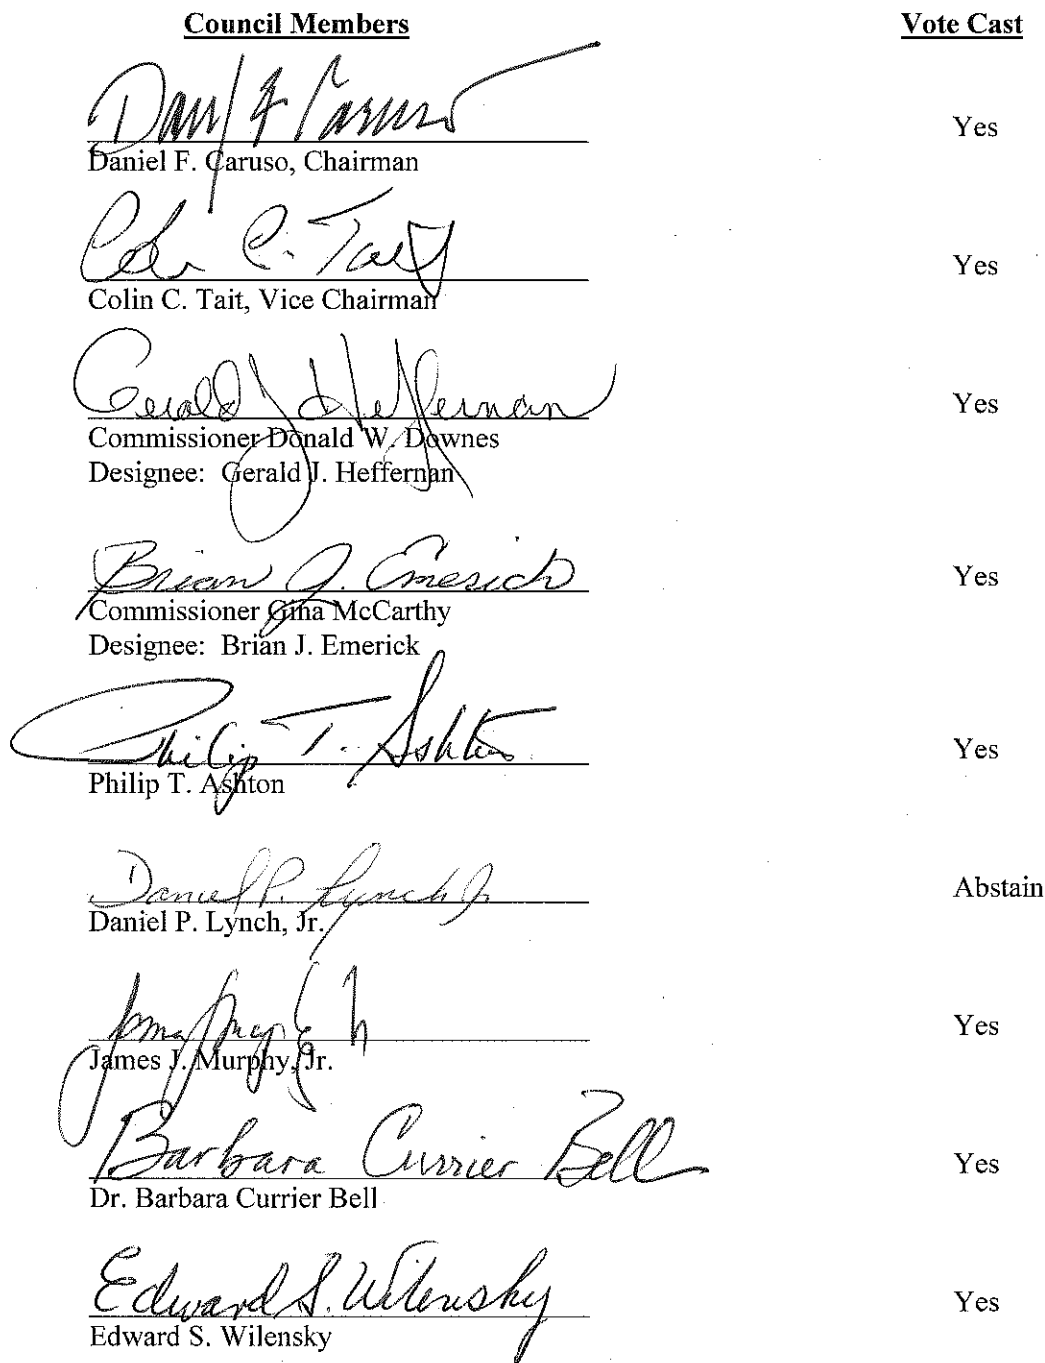 Council Members Vote Cast
Daniel F. Caruso Yes
Daniel F. Caruso, Chairman
Colin C. Tait Yes
Colin C. Tait, Vice Chairman
Gerald J. Heffernan Yes
Commissioner Donald W. Downes
Designee: Gerald J. Heffernan
Brian J. Emerick Yes
Commissioner Gina McCarthy
Designee: Brian J. Emerick
Philip T. Ashton Yes
Philip T. Ashton
Daniel P. Lynch Jr Abstain
Daniel P. Lynch, Jr.
Yes
James J. Murphy, Jr.
Barbara Currier Bell Yes
Dr. Barbara Currier Bell
Edward S. Wilensky Yes
Edward S. Wilensky